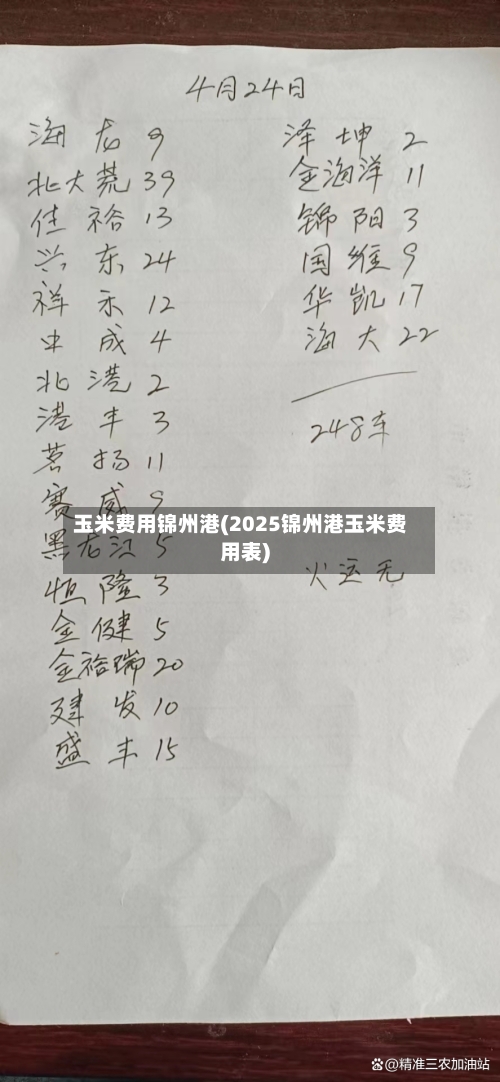 4月24日
海龙 9
北大荒 39
佳裕 13
兴东 24
祥禾 12
中成 4
北港 2
港丰 3
茗扬 11
赛威 9
黑龙江 5
恒隆 3
金健 5
金裕瑞 20
建发 10
盛丰 15
泽坤 2
金海洋 11
锦阳 3
国维 9
华凯 17
海大 22
248车
火运无
玉米费用锦州港(2025锦州港玉米费
用表)
@精准三农加油站